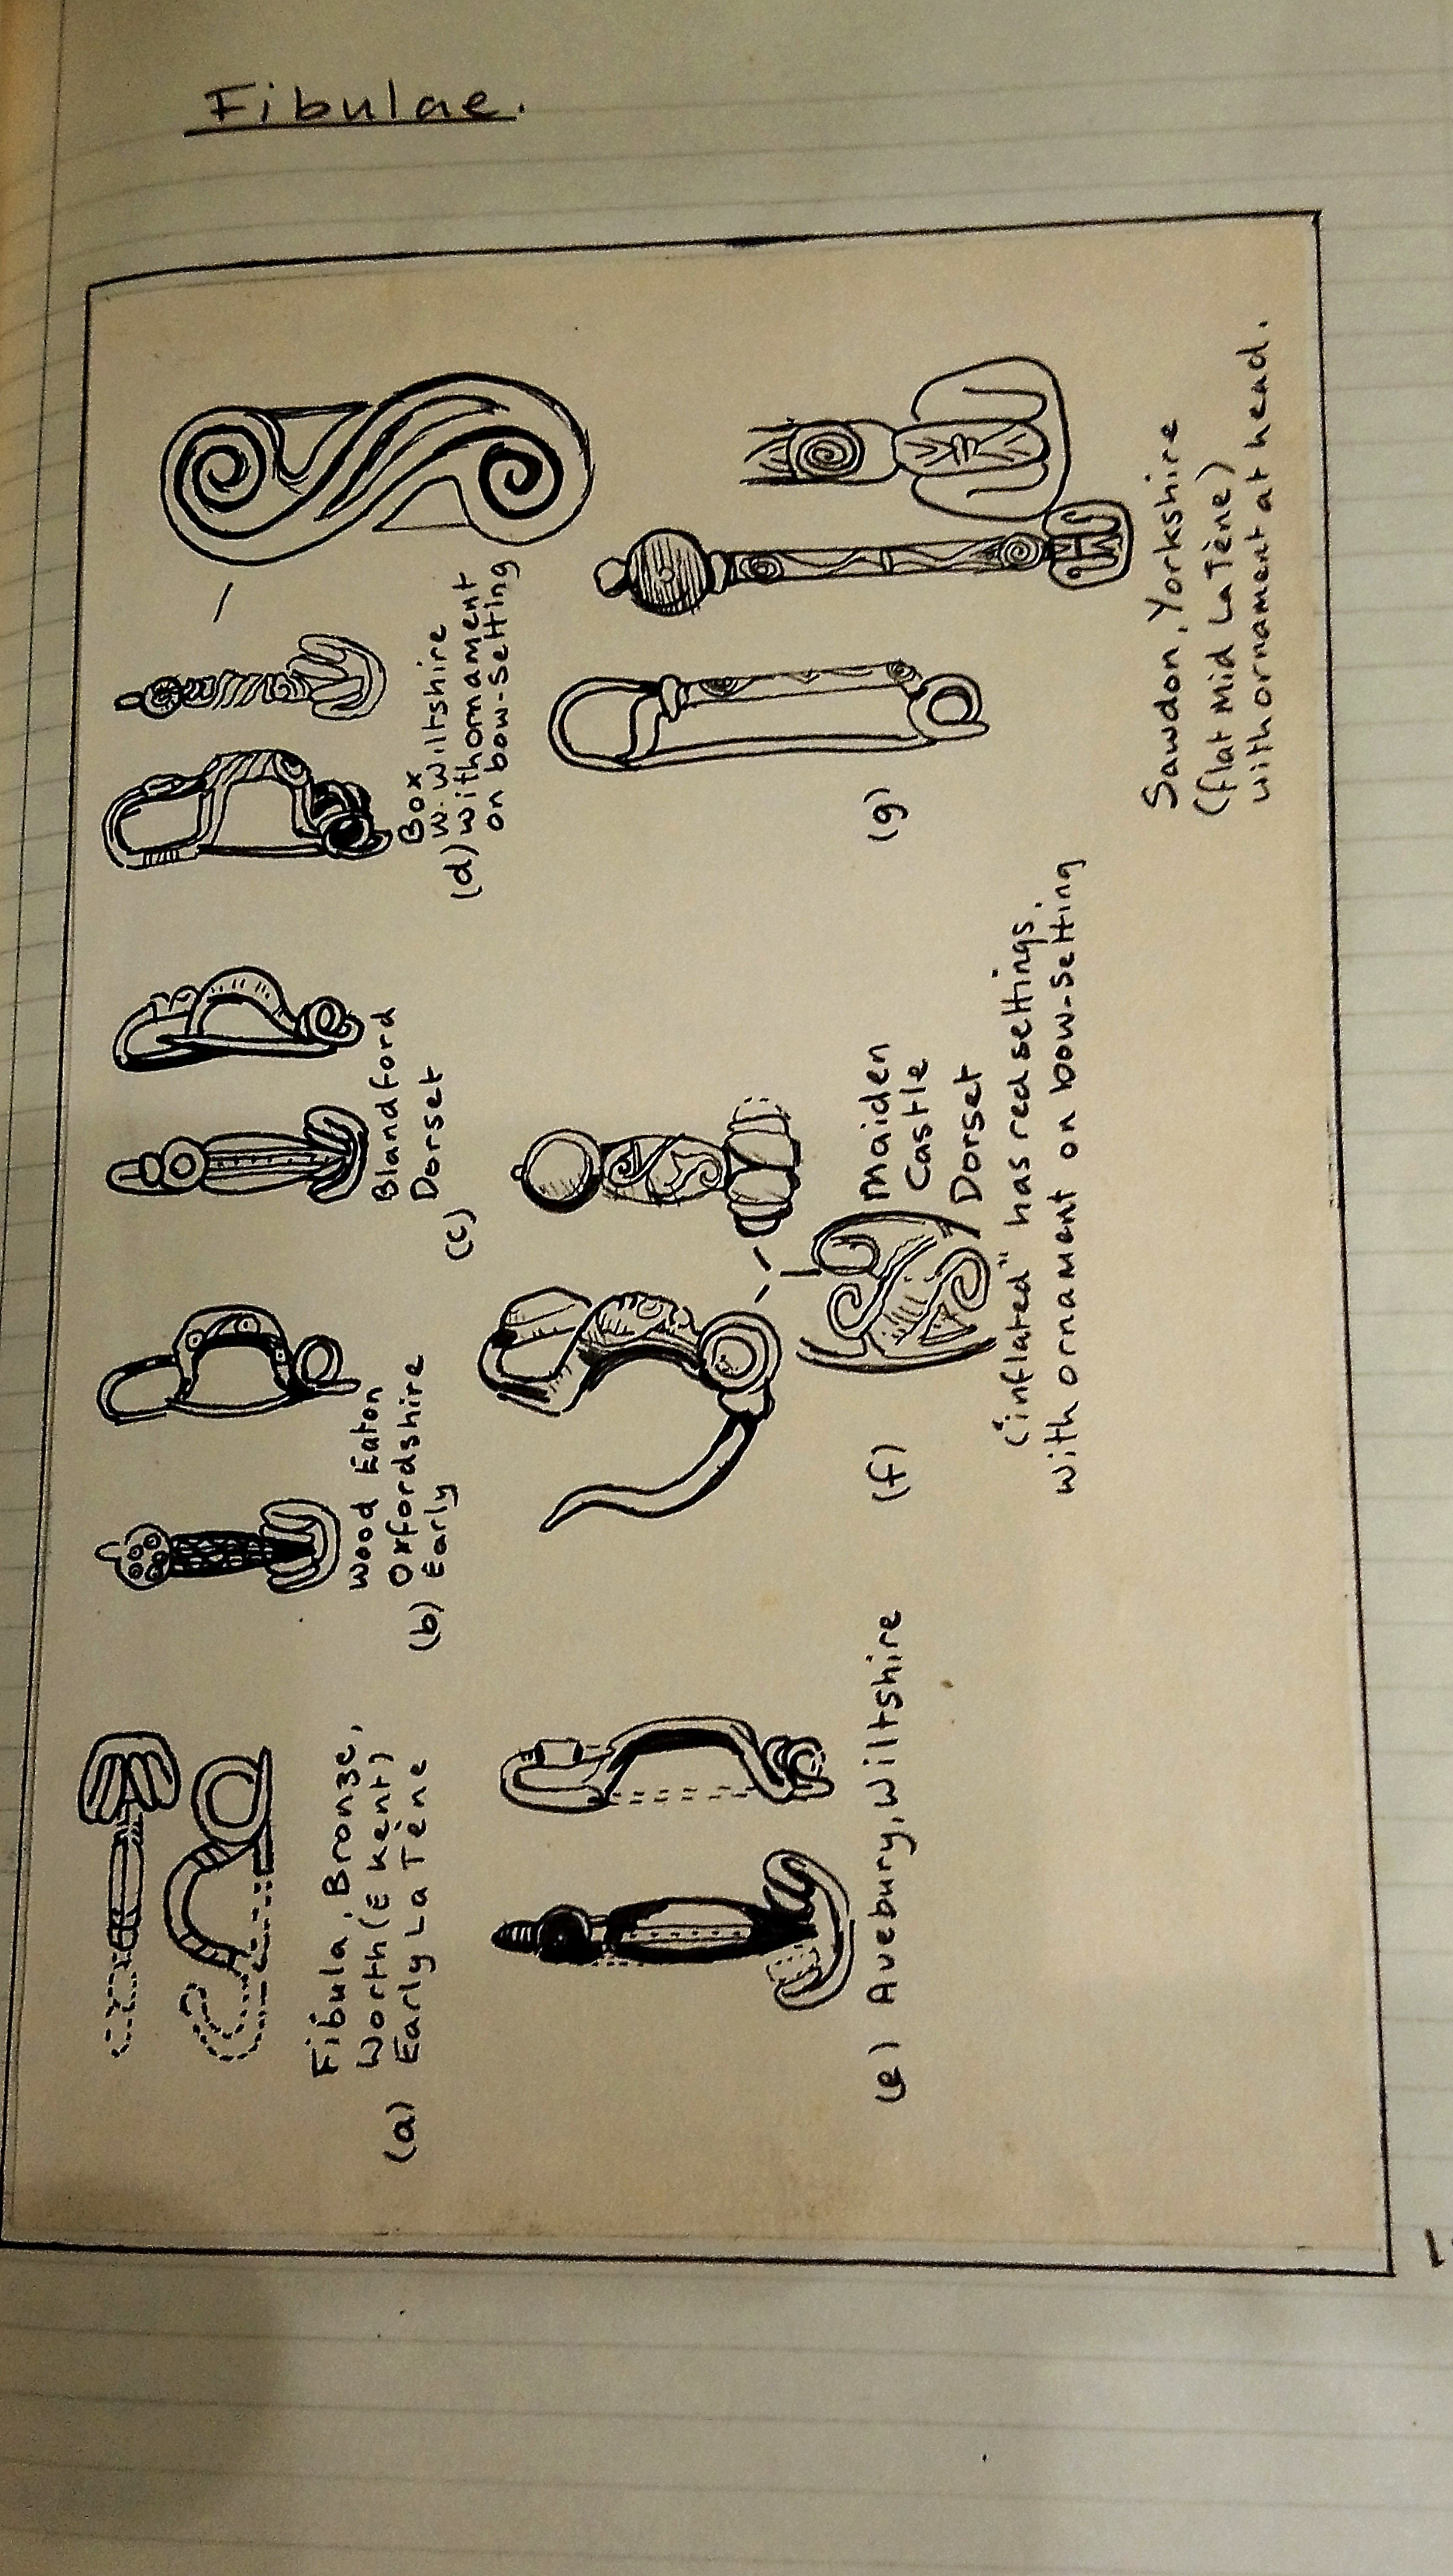 Fibulae.
Fibula, Bronze,
Worth (E Kent)
(a) Early La Tène
Wood Eaton
Oxfordshire
(b) Early
Blandford
Dorset
(c)
Box
W. Wiltshire
(d) with ornament
on bow-setting
(e) Avebury, Wiltshire
(f)
Maiden
Castle
Dorset
("inflated" has red settings.
with ornament on bow-setting
(g)
Sawdon, Yorkshire
(flat Mid La Tène)
with ornament at head.